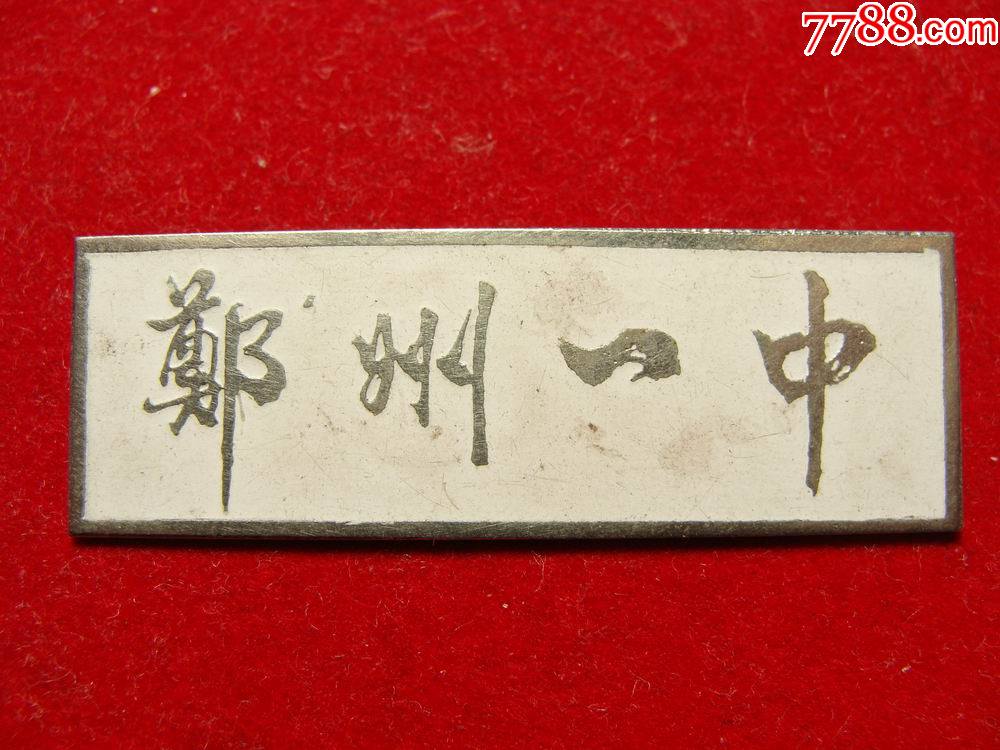 7788.com
鄭州一中